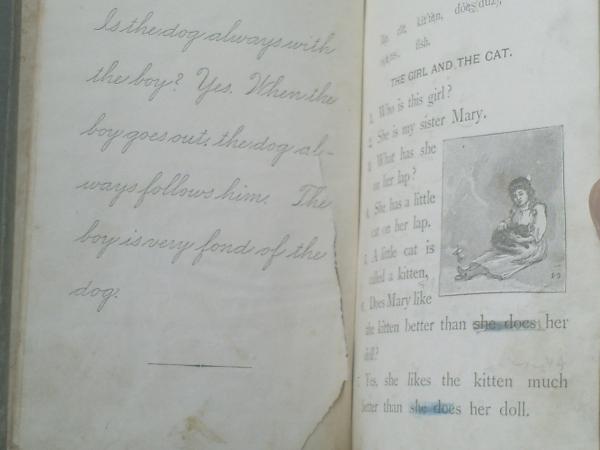 Is the dog always with
the boy? Yes. When the
boy goes out, the dog al-
ways follows him. The
boy is very fond of the
dog.
kit'ten,
fish.
THE GIRL AND THE CAT.
1. Who is this girl?
2. She is my sister Mary.
3. What has she
on her lap?
4. She has a little
cat on her lap.
5. A little cat is
called a kitten,
6. Does Mary like
the kitten better than she does her
doll?
7. Yes, she likes the kitten much
better than she does her doll.